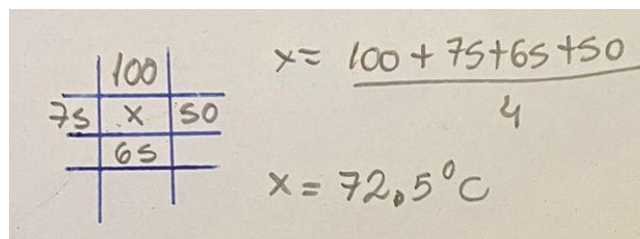 100
75 x 50
65
x = 100 + 75 + 65 + 50
4
x = 72,5°C